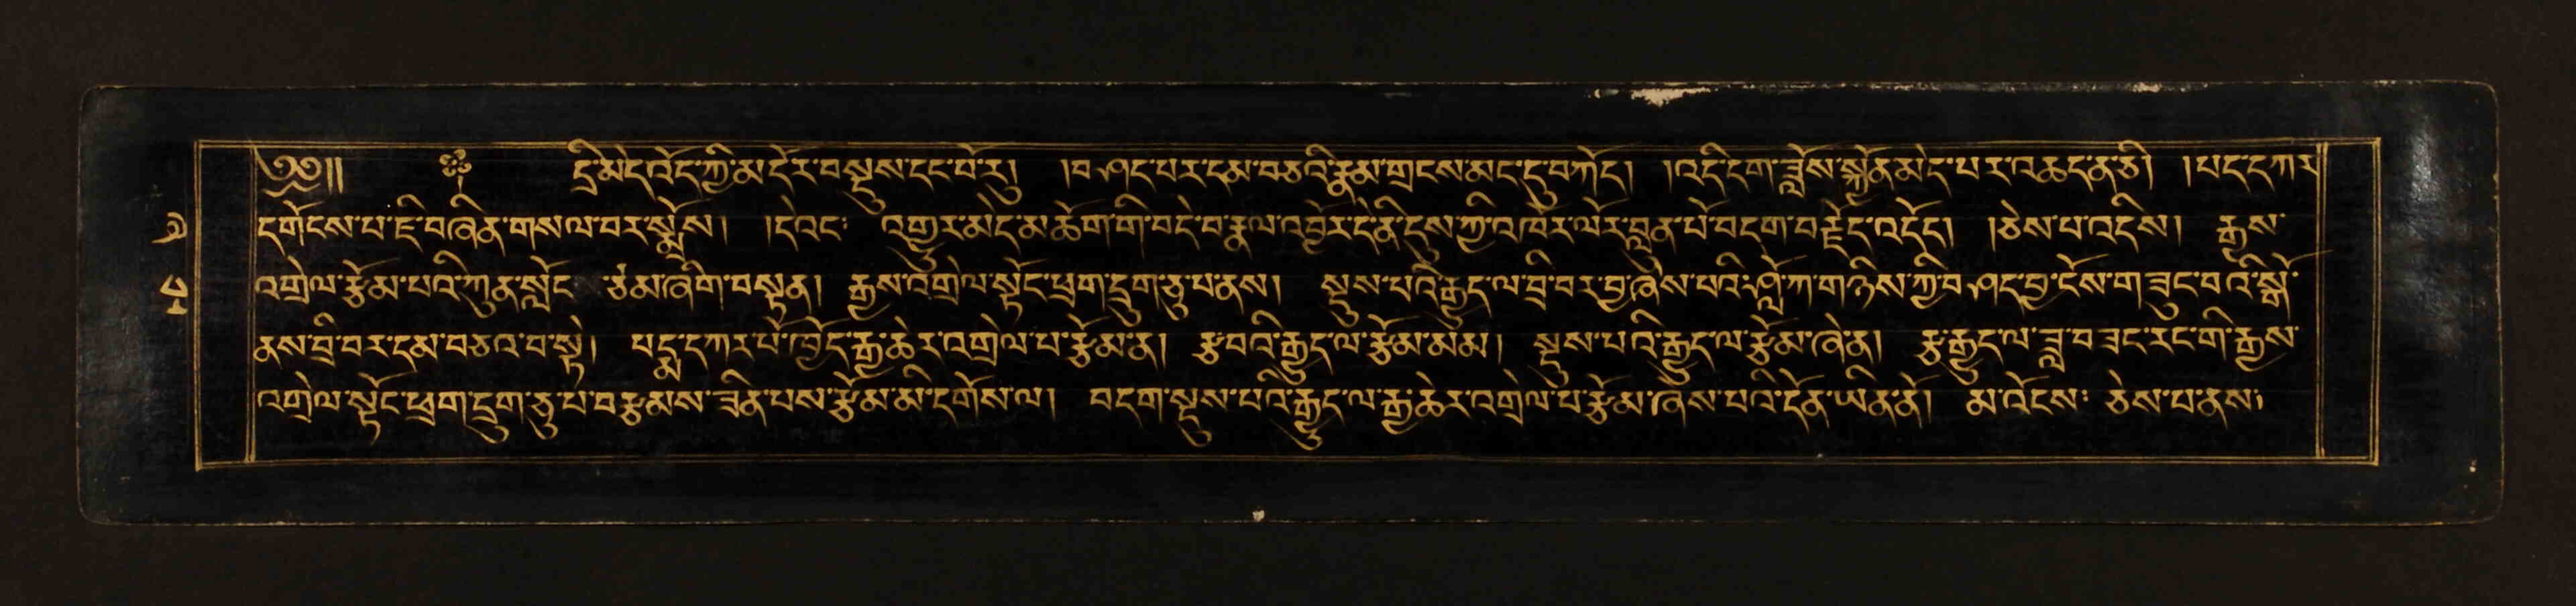 ༄༅།། ༈ དྲི་མེད་འོད་ཀྱི་མ་དེར་བསྡུས་དང་པོ་རུ། །བཤད་པར་དམ་བཅའི་རྣམ་གྲངས་མང་དུ་བཀོད། །འདི་དག་ཟློས་སྐྱོན་མེད་པར་འཆད་ན་ཅི། །པད་དཀར
དགོངས་པ་ཇི་བཞིན་གསལ་བར་སྨྲོས། །དེ་འང་ འགྱུར་མེད་མ་ཆོག་གི་བདེ་བ་རྣལ་འབྱོར་དེ་ནི་དུས་ཀྱི་འཁོར་ལོར་བླུན་པོ་བདག་བརྗོད་འདོད། །ཅེས་པ་འདིས། རྒྱས་
འགྲེལ་རྩོམ་པའི་ཀུན་སློང་ ཙམ་ཞིག་བསྟན། རྒྱས་འགྲེལ་སྟོང་ཕྲག་དྲུག་ཅུ་པ་ནས། སྡུས་པའི་རྒྱུད་ལ་བྲི་བར་བྱ་ཞེས་པའི་ཤློ་ཀ་གཉིས་ཀྱི་བཤད་བྱ་ངོས་གཟུང་བའི་སྒོ་
ནས་བྲི་བར་དམ་བཅའ་བ་སྟེ། པདྨ་དཀར་པོ་ཁྱོད་རྒྱ་ཆེར་འགྲེལ་པ་རྩོམ་ན། རྩ་བའི་རྒྱུད་ལ་རྩོམ་མམ། སྡུས་པའི་རྒྱུད་ལ་རྩོམ་ཞེ་ན། རྩ་རྒྱུད་ལ་ཟླ་བ་ཟང་རང་གི་རྒྱས་
འགྲེལ་སྟོང་ཕྲག་དྲུག་ཅུ་པ་བརྩམས་ཟིན་པས་རྩོམ་མི་དགོས་ལ། བདག་སྡུས་པའི་རྒྱུད་ལ་རྒྱ་ཆེར་འགྲེལ་པ་རྩོམ་ཞེས་པའི་དོན་ཡིན་ནོ། མ་འོངས་ ཅེས་པ་ནས་